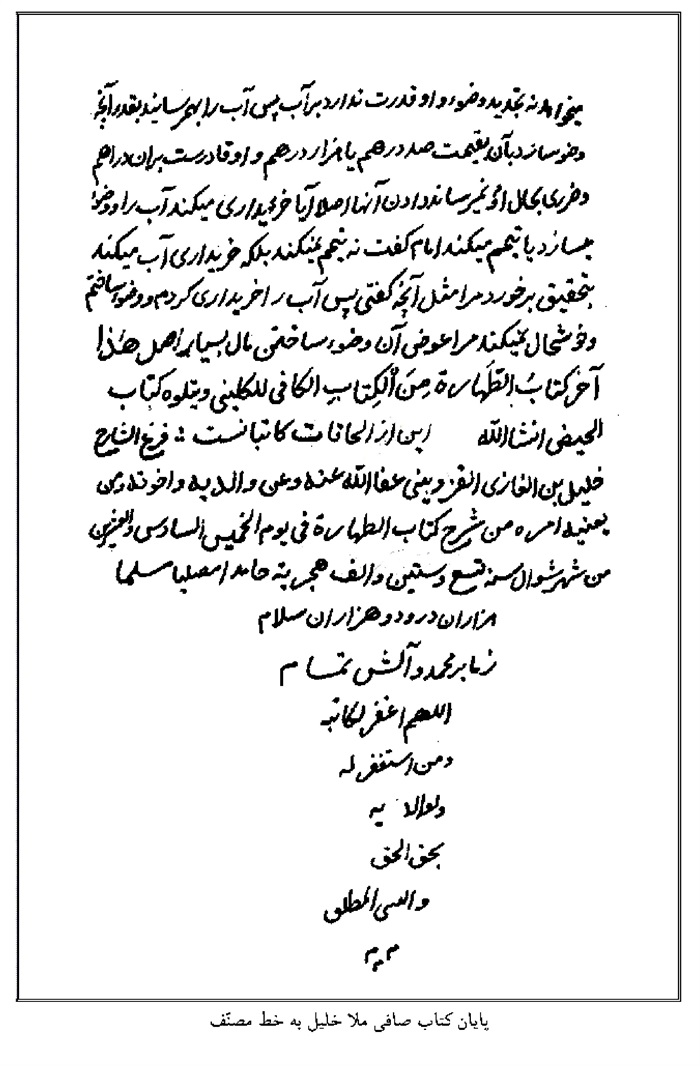 میخواهد نه تجدید وضوء و او قدرت ندارد بر آب پس آب را بهم رسانید بقدر آنچه
وضو سازد بآن بقیمت صد درهم یا هزار درهم و او قادرست بران دراهم
و ضرری بحال او نمیرساند دادن آنها اصلا آیا خریداری میکند آب را و وضوء
میسازد یا تیمم میکند امام گفت نه تیمم نمیکند بلکه خریداری آب میکند
بتحقیق برخورد مرا مثل آنچه گفتی پس آب را خریداری کردم و وضوء ساختم
و خوشحال نمیکند مرا عوض آن وضوء ساختن مال بسیار اصل هذا
آخر کتابُ الطَهارة مِنَ الْکِتابِ الکافی للکلینی و یتلوه کتاب
الحیض انشاالله این از الحاقات کاتبانست فرغ الشارح
خلیل بن الغازی القزوینی عفا الله عنه و عن والدیه و اخوته و من
یعنیه امره من شرح کتاب الطهارة فی یوم الخمیس السادس والعشرین
من شهر شوال سنه تسع و ستین و الف هجریة حامدا مصلیا مسلما
هزاران درود و هزاران سلام
زما بر محمد و آلش تمام
اللهم اغفر لکاتبه
و من استغفر له
و لوالدیه
بحق الحق
و النبی المطلق
م م م
پایان کتاب صافی ملا خلیل به خط مصنّف